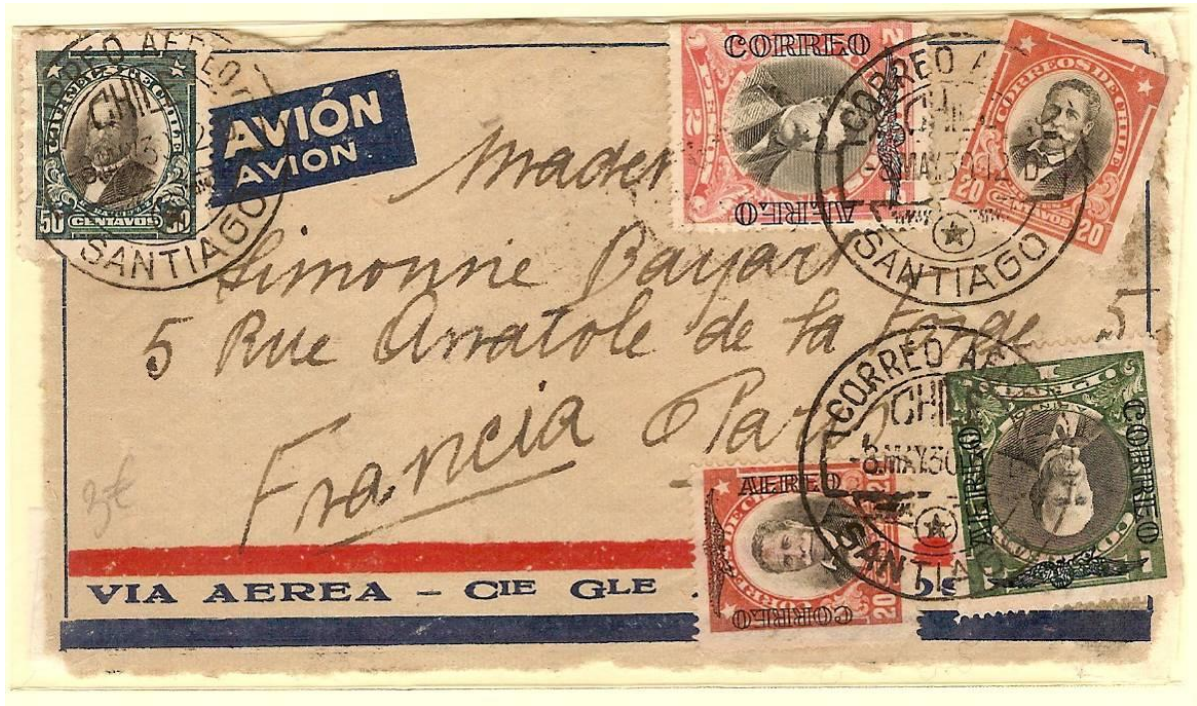 CORREO AEREO
CHILE
SANTIAGO
50 CENTAVOS 50
AVIÓN
AVION
CORREO
AEREO
2 PESOS 2
CORREO A
CHILE
-8.MAY.30.-12 D
SANTIAGO
CORREOS DE CHILE
20 CENTAVOS 20
Simonne Bayar
5 Rue Anatole de la Forge 5
Francia Paris
3€
CORREO AE
CHILE
-8.MAY.30
SANTIAGO
AEREO
DE CHILE
20
CORREO
AEREO
CORREO
VIA AEREA - CIE GLE